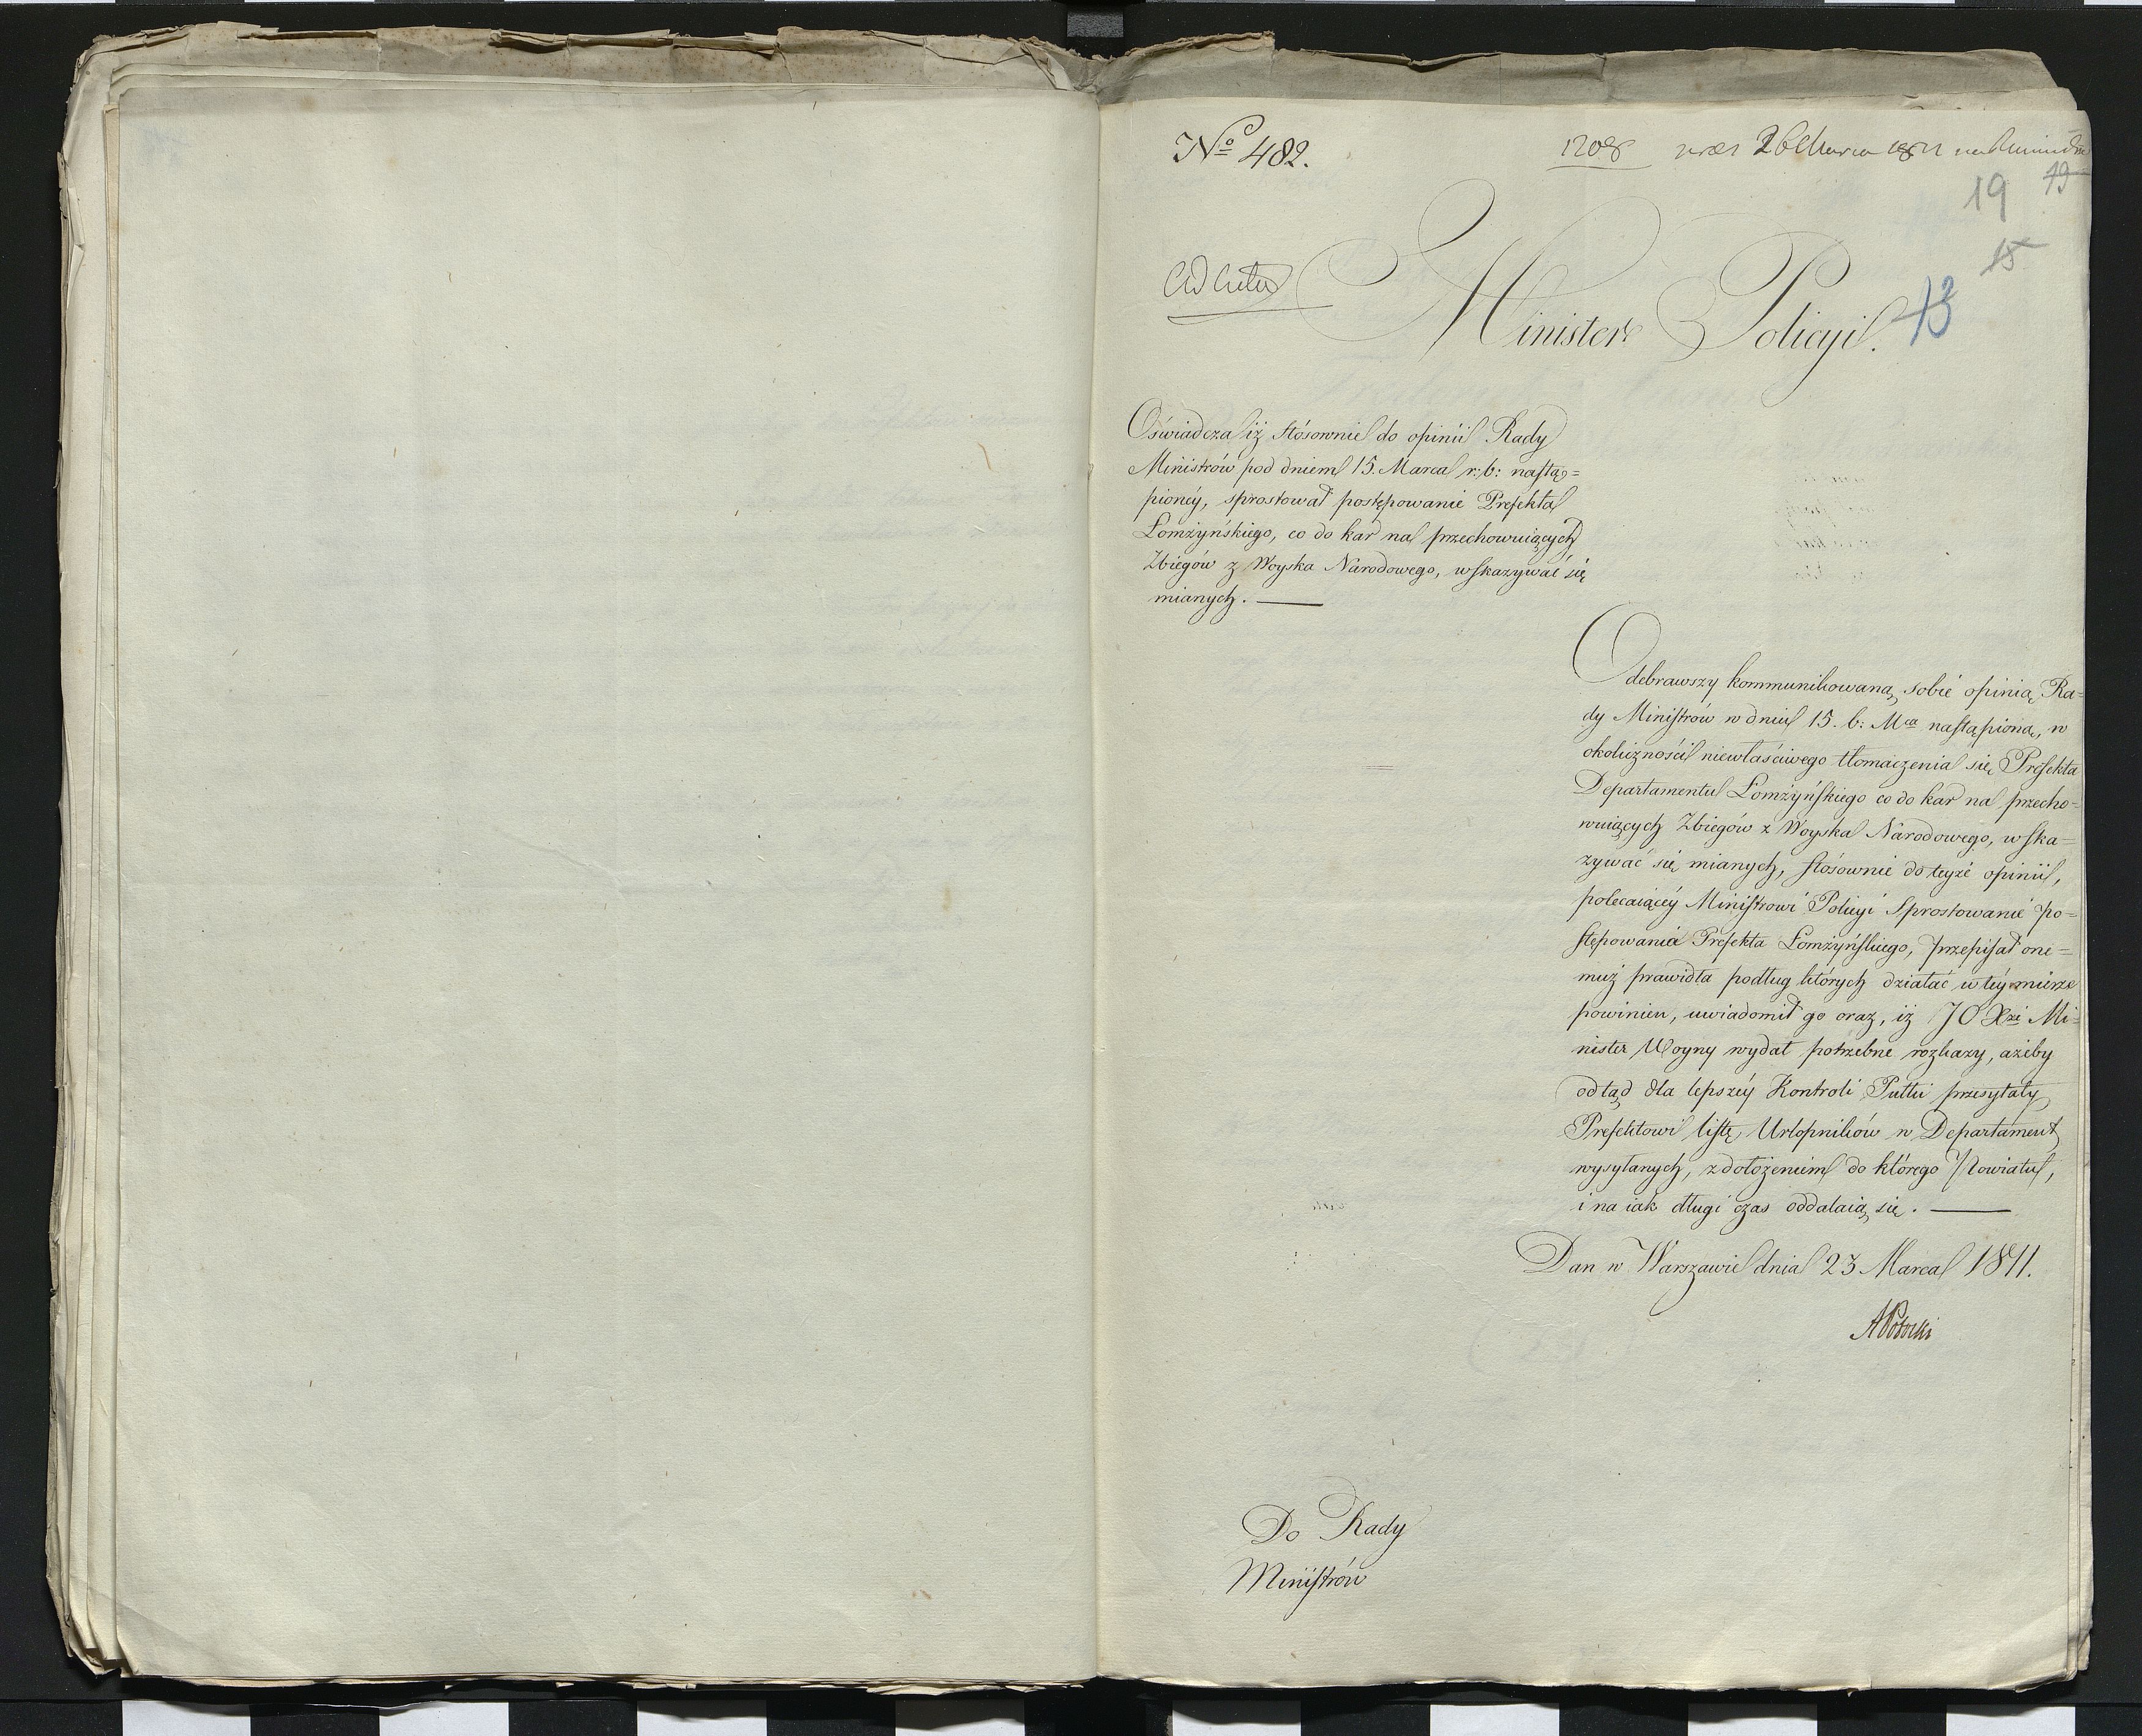 No 482.
1208 26 Marca 1811
19 19
15
Ad acta
13
Minister Policyi.
Oświadcza iż stósownie do opinii Rady
Ministrów pod dniem 15. Marca r: b: nastą=
pioney, sprostował postępowanie Prefekta
Łomżyńskiego, co do kar na przechowuiących
Zbiegów z Woyska Narodowego, wskazywać się
mianych. —
Odebrawszy kommunikowaną sobie opinią Ra=
dy Ministrów w dniu 15. b: Mca nastąpioną, w
okoliczności niewłaściwego tłomaczenia się Prefekta
Departamentu Łomżyńskiego co do kar na przecho=
wuiących Zbiegów z Woyska Narodowego, wska=
zywać się mianych, stósownie do teyże opinii,
polecaiącéy Ministrowi Policyi sprostowanie po=
stępowania Prefekta Łomżyńskiego, przepisał one=
muż prawidła podług których działać w téy mierze
powinien, uwiadomił go oraz, iż JO Xże Mi=
nister Woyny wydał potrzebne rozkazy, ażeby
odtąd dla lepszéy Kontroli Pułki przesyłały
Prefektowi listę Urlopników w Departament
wysyłanych, z dołożeniem do którego Powiatu,
i na iak długi czas oddalaią się. —
Dan w Warszawie dnia 23 Marca 1811.
APotocki
Do Rady
Ministrów